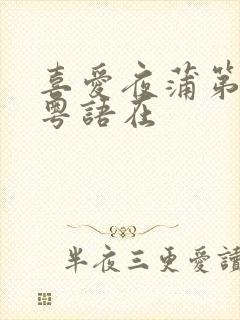 喜愛夜蒲第
粵語在
半夜三更愛讀